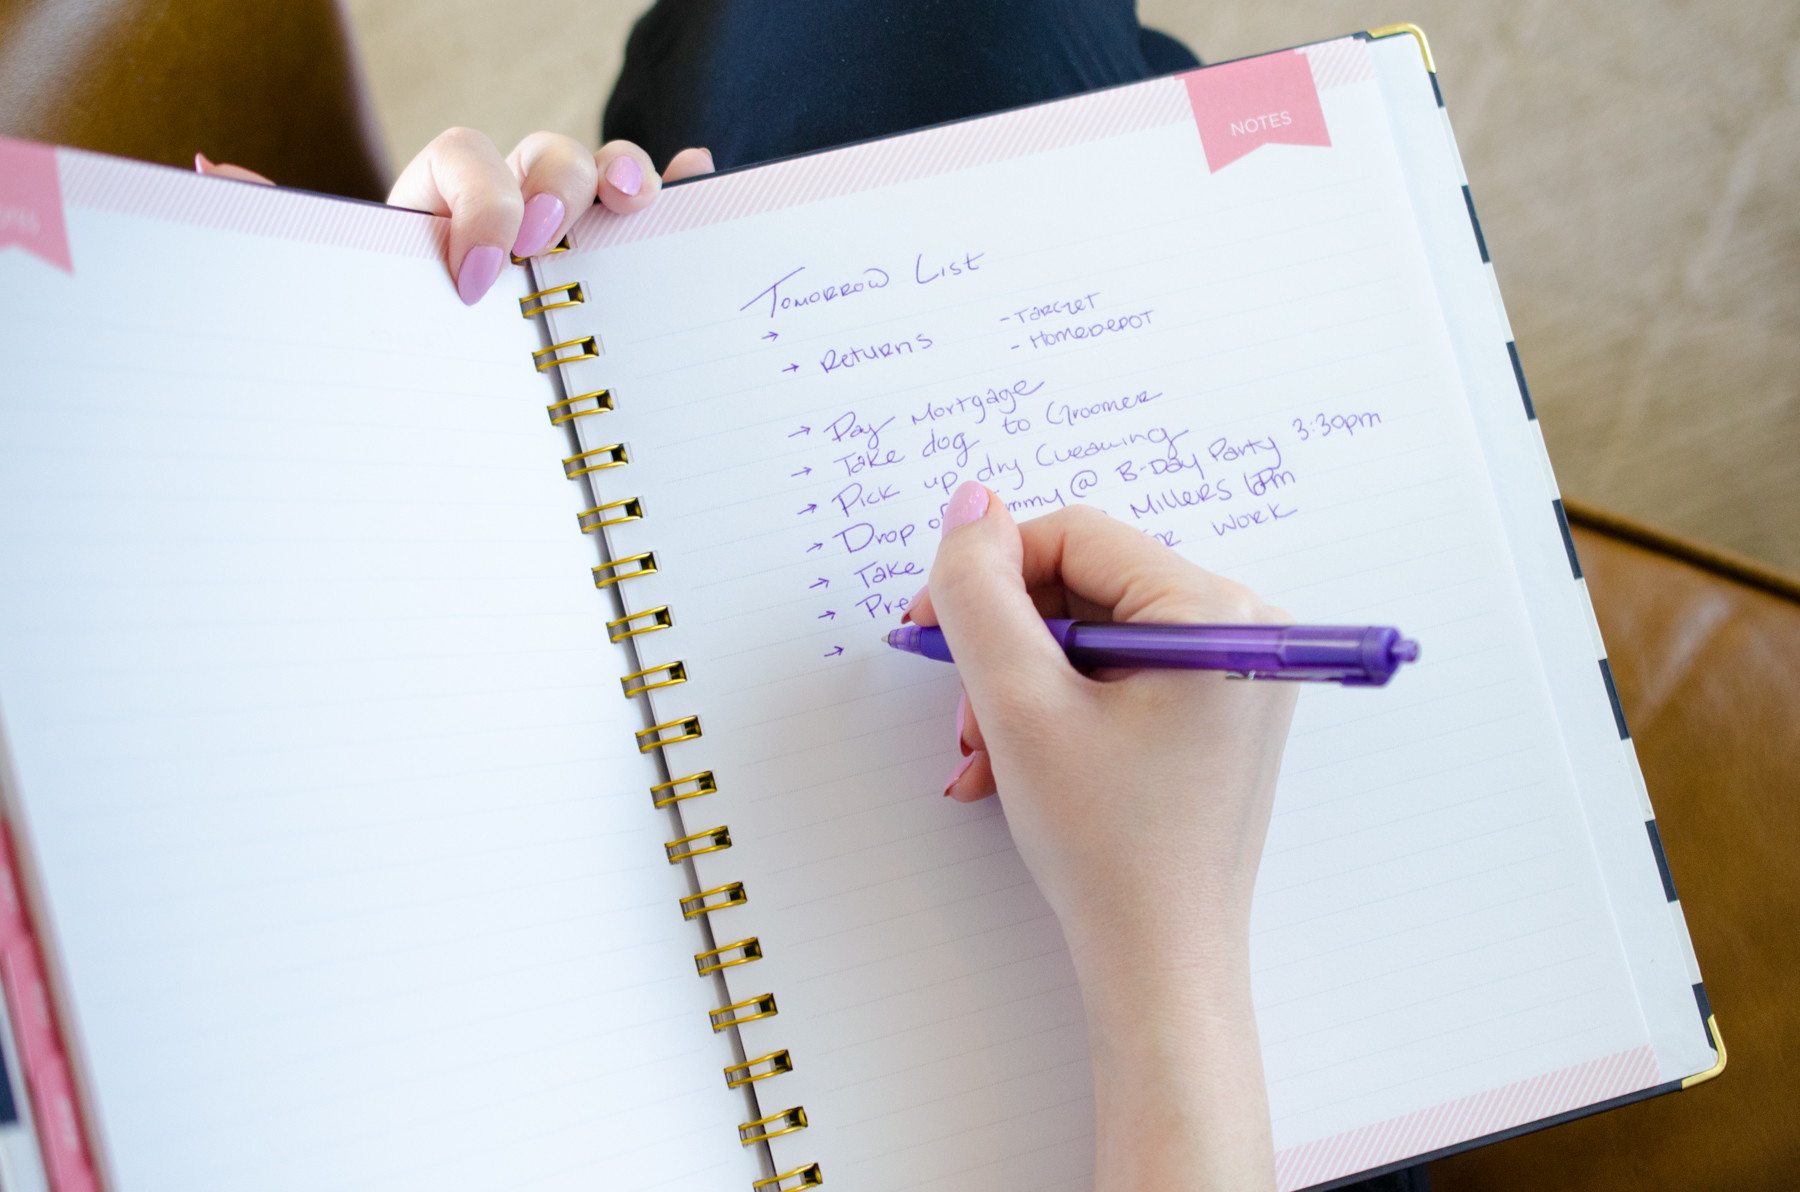 NOTES
Tomorrow List
→
→ Returns - Target
- HomeDepot
→ Pay Mortgage
→ Take dog to Groomer
→ Pick up dry Cleaning
→ Drop of mmy @ B-Day Party 3:30pm
→ Take Millers 6pm
→ Pre for work
→